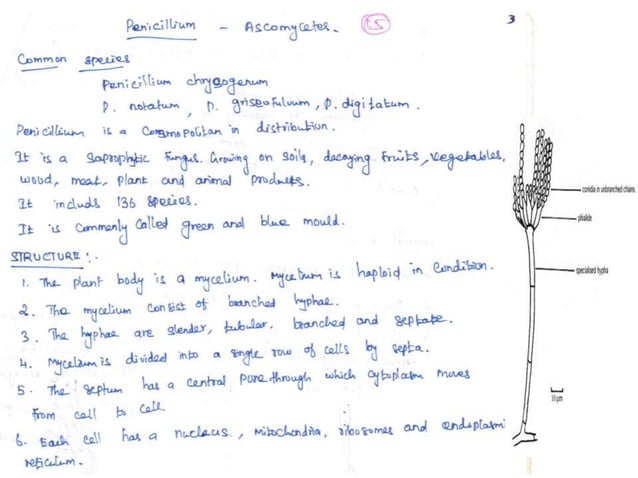 Penicillium - Ascomycetes. 5
3
Common species
Penicillium chrysogenum
P. notatum, P. griseofulvum, P. digitatum.
Penicillium is a Cosmopolitan in distribution.
It is a saprophytic fungus. Growing on soils, decaying fruits, vegetables,
wood, meat, plant and animal products.
It includs 136 species.
It is commenly called green and blue mould.
STRUCTURE :-
1. The plant body is a mycelium. Mycelium is haploid in condition.
2. The mycelium consist of branched hyphae.
3. The hyphae are slender, tubular. branched and septate.
4. Mycelium is divided into a single row of cells by septa.
5. The septum has a central pore through which cytoplasm moves
from cell to cell.
6. Each cell has a nucleus, mitochondria, ribosomes and endoplasmi
reticulum.
conidia in unbranched chains
phialide
specialised hypha
10 µm